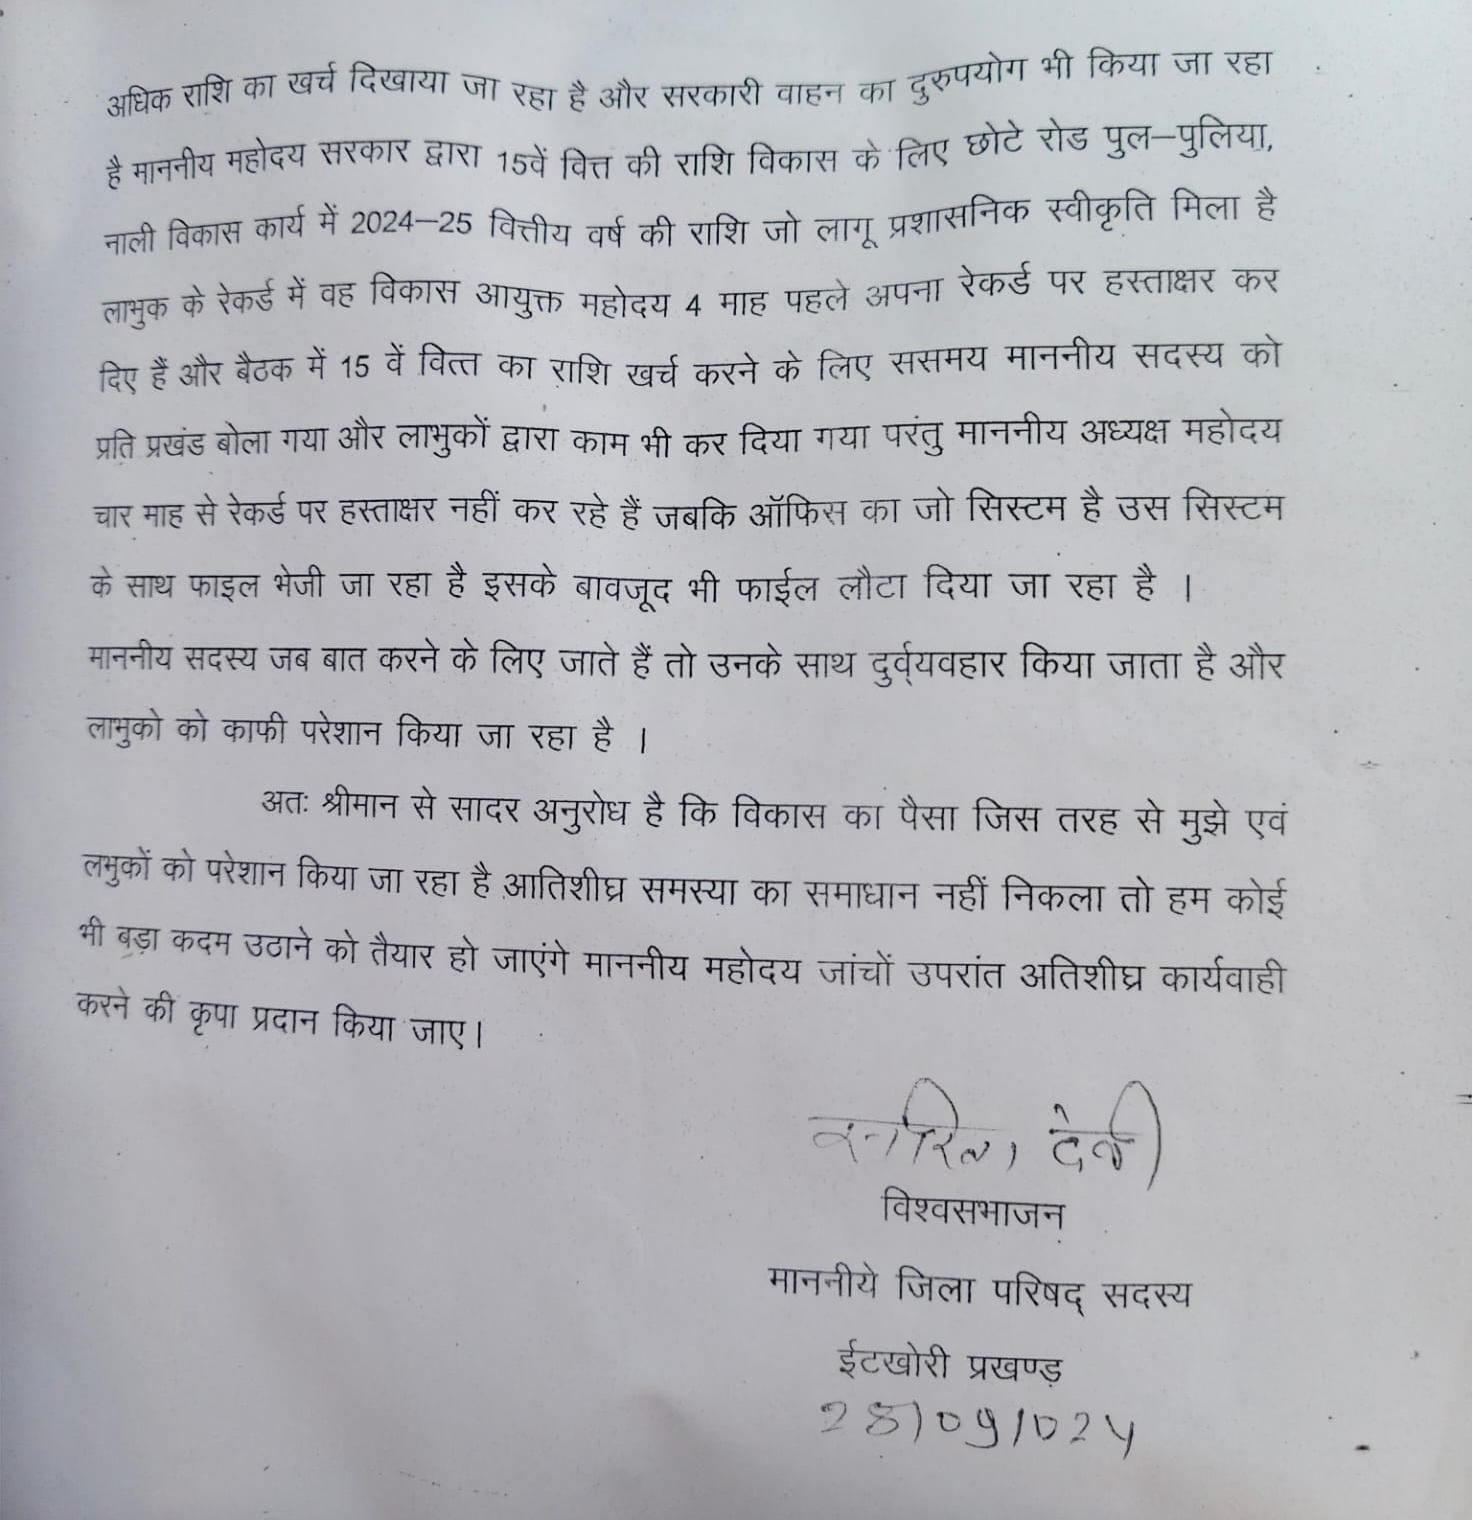 अधिक राशि का खर्च दिखाया जा रहा है और सरकारी वाहन का दुरुपयोग भी किया जा रहा
है माननीय महोदय सरकार द्वारा 15वें वित्त की राशि विकास के लिए छोटे रोड पुल–पुलिया,
नाली विकास कार्य में 2024–25 वित्तीय वर्ष की राशि जो लागू प्रशासनिक स्वीकृति मिला है
लाभुक के रेकर्ड में वह विकास आयुक्त महोदय 4 माह पहले अपना रेकर्ड पर हस्ताक्षर कर
दिए हैं और बैठक में 15 वें वित्त का राशि खर्च करने के लिए ससमय माननीय सदस्य को
प्रति प्रखंड बोला गया और लाभुकों द्वारा काम भी कर दिया गया परंतु माननीय अध्यक्ष महोदय
चार माह से रेकर्ड पर हस्ताक्षर नहीं कर रहे हैं जबकि ऑफिस का जो सिस्टम है उस सिस्टम
के साथ फाइल भेजी जा रहा है इसके बावजूद भी फाईल लौटा दिया जा रहा है ।
माननीय सदस्य जब बात करने के लिए जाते हैं तो उनके साथ दुर्व्यवहार किया जाता है और
लाभुको को काफी परेशान किया जा रहा है ।
अतः श्रीमान से सादर अनुरोध है कि विकास का पैसा जिस तरह से मुझे एवं
लभुकों को परेशान किया जा रहा है आतिशीघ्र समस्या का समाधान नहीं निकला तो हम कोई
भी बड़ा कदम उठाने को तैयार हो जाएंगे माननीय महोदय जांचों उपरांत अतिशीघ्र कार्यवाही
करने की कृपा प्रदान किया जाए।
देवी
विश्वसभाजन
माननीये जिला परिषद् सदस्य
ईटखोरी प्रखण्ड़
28/09/024